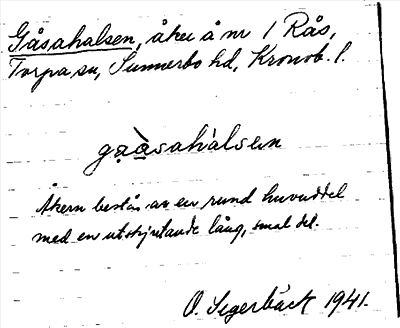 Gåsahalsen, åker å nr 1 Rås,
Torpa sn, Sunnerbo hd, Kronob. l.
gạạ̀sahàlsen
Åkern består av en rund huvuddel
med en utskjutande lång, smal del.
O. Segerbäck 1941.